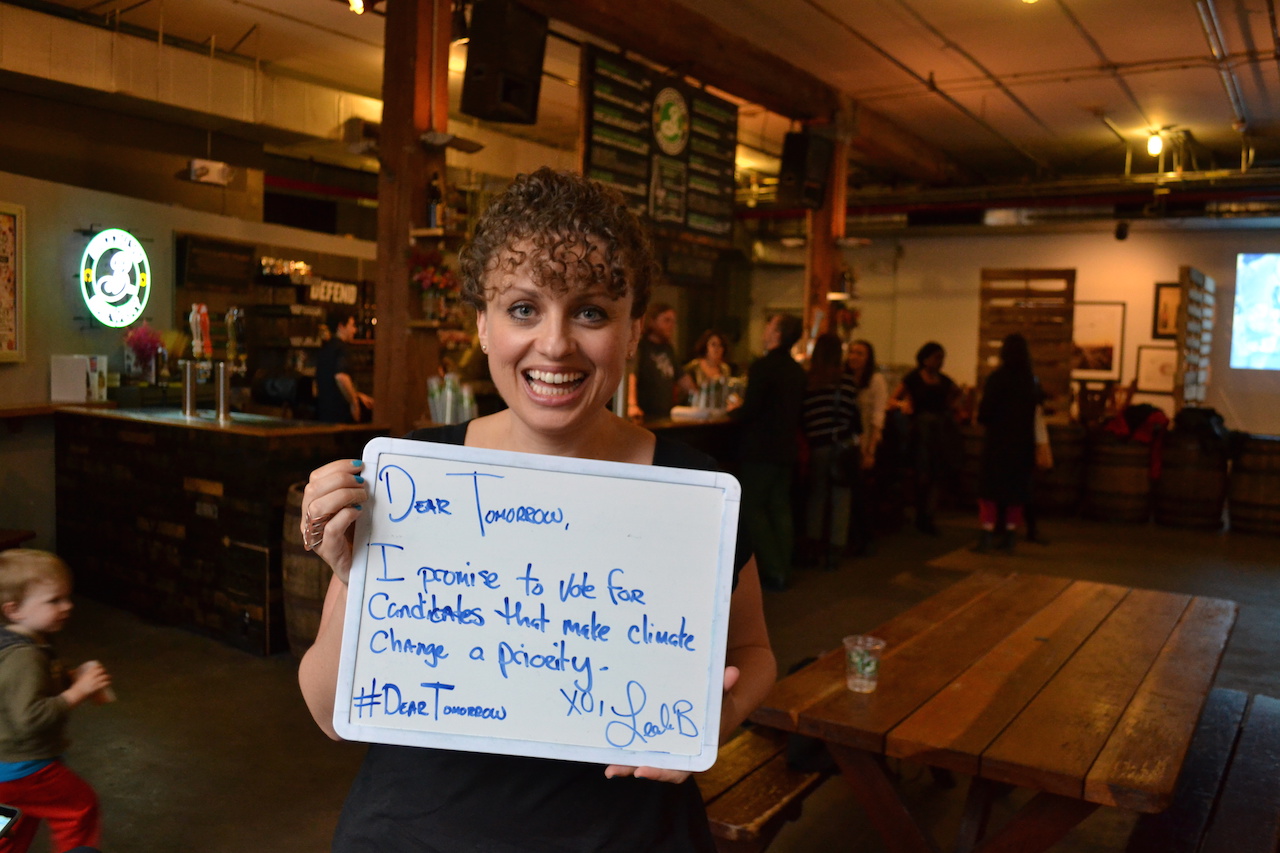 DEFEND
B
Dear Tomorrow,
I promise to vote for
Candidates that make climate
Change a priority.
#DearTomorrow
XO, Leah B